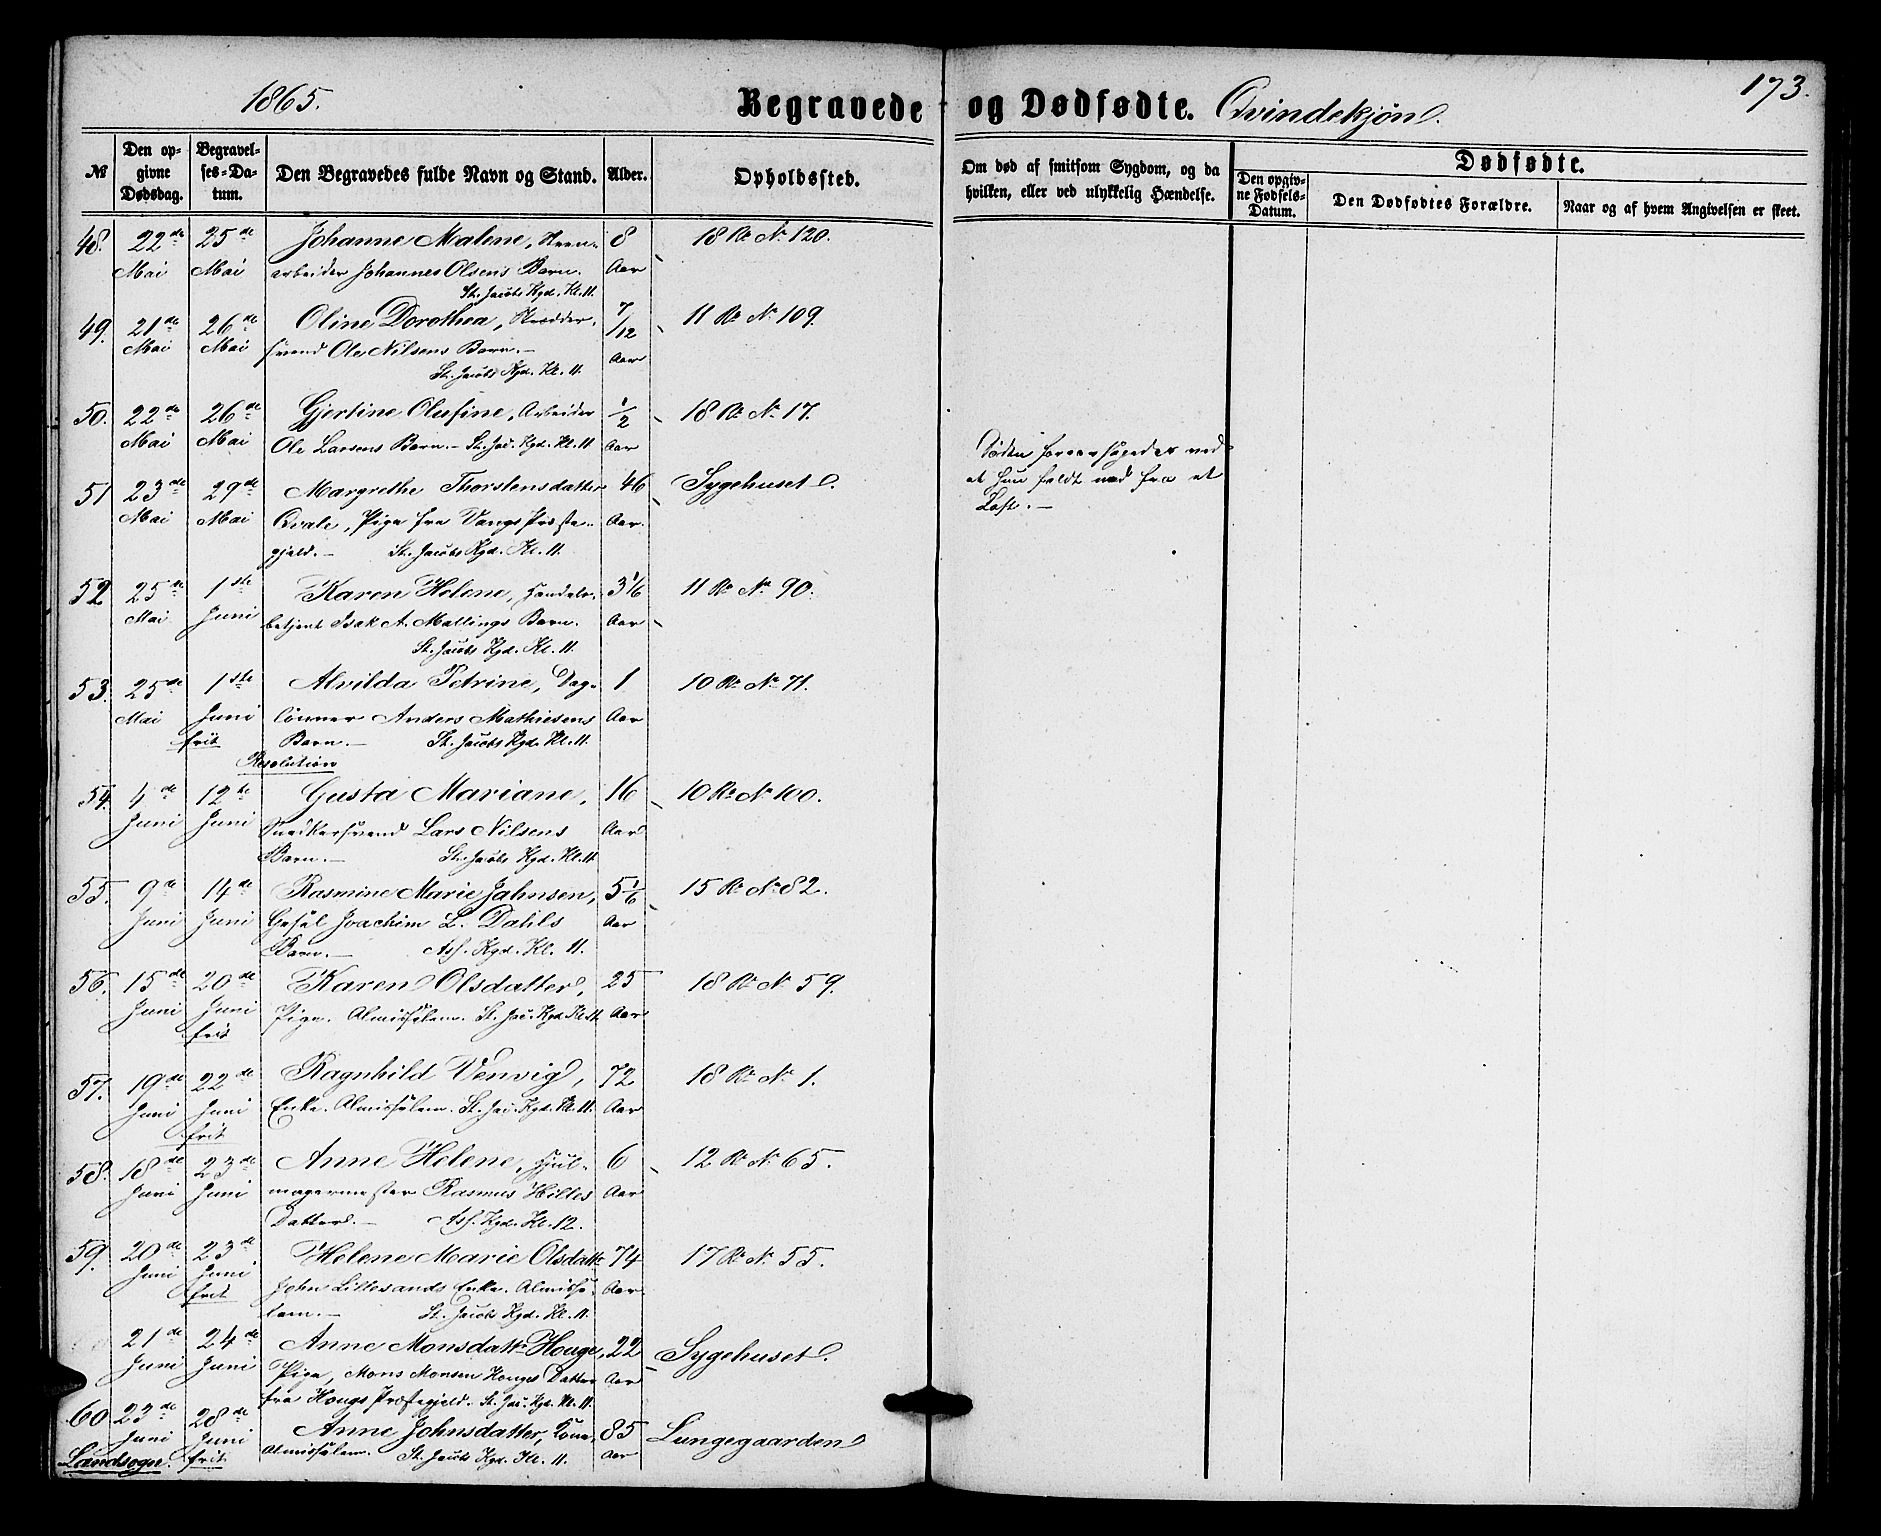 1865.
Begravede og Dødfødte. Qvindekjøn.
173.
№
Den opgivne Dødsdag.
Begravelses-Datum.
Den Begravedes fulde Navn og Stand.
Alder.
Opholdssted.
Om død af smitsom Sygdom, og da hvilken, eller ved ulykkelig Hændelse.
Dødfødte.
Den opgivne Fødsels-Datum.
Den Dødfødtes Forældre.
Naar og af hvem Angivelsen er skeet.
48. 22de 25de Johanne Malene, 8 18 Rd No 120.
Mai Mai arbeider Johannes Olsens Barn. Aar
St. Jacobs Kgd. Kl. 11.
49. 21de 26de Oline Dorothea, Skrædder- 7/12 11 Rd No 109.
Mai Mai svend Ole Nilsens Barn.- Aar
St. Jacobs Kgd. Kl. 11.
50. 22de 26de Gjertine Olufine, Arbeider 1/2 18 Rd No 17.
Mai Mai Ole Larsens Barn.- St. Jac. Kgd. Kl. 11 Aar
51 23de 29de Margrethe Thorstensdatter 46 Sygehuset. Døden foraarsagedes ved
Mai Mai Qvale, Pige fra Vangs Præste- Aar. at hun faldt ned fra et
gjeld.- St. Jacobs Kgd. Kl. 11. Loft.-
52 25de 1ste Karen Helene, Handels- 3 1/6 11 Rd No 90.
Mai Juni betjent Isak A. Mallings Barn. Aar
St. Jacobs Kgd. Kl. 11.
53. 25de 1ste Alvilda Petrine, Dag- 1 10 Rd No 71.
Mai Juni lønner Anders Mathiesens Aar
frit Barn.- St. Jacobs Kgd. Kl. 11.
Resolution
54. 4de 12te Gusta Mariane, 16 10 Rd No 100.
Juni Juni Snedkersvend Lars Nilsens Aar
Barn.- St. Jacobs Kgd. Kl. 11
55. 9de 14de Rasmine Marie Jahnsen, 5 1/6 15 Rd No 82.
Juni Juni Joachim L. Dahls Aar
Barn.- Ass. Kgd. Kl. 11.
56. 15de 20de Karen Olsdatter, 25 18 Rd No 59.
Juni Juni Pige. Almisselem. St. Jac. Kgd. Kl. 11 Aar
frit
57. 19de 22de Ragnhild Venvig, 72 18 Rd No 1.
Juni Juni Enke. Almisselem. St. Jac. Kgd. Kl. 11. Aar
frit
58. 18de 23de Anne Helene, Hjul- 6 12 Rd No 65.
Juni Juni magermester Rasmus Hilles Aar
Datter.- Ass. Kgd. Kl. 12.
59. 20de 23de Helene Marie Olsdatt 74 17 Rd No 55.
Juni Juni John Lillesands Enke. Almisse- Aar
frit lem.- St. Jacobs Kgd. Kl. 11.
21de 24de Anne Monsdattr Houge, 22 Sygehuset.
Juni Juni Pige, Mons Monsen Houges Datter Aar
fra Hougs Præstegjeld. St. Jac. Kgd. Kl. 11.
60 23de 28de Anne Johnsdatter, Kone, 85 Lungegaarden
Juni Juni Almisselem. St. Jacobs Kgd. Kl. 11. Aar
Landsogn. frit